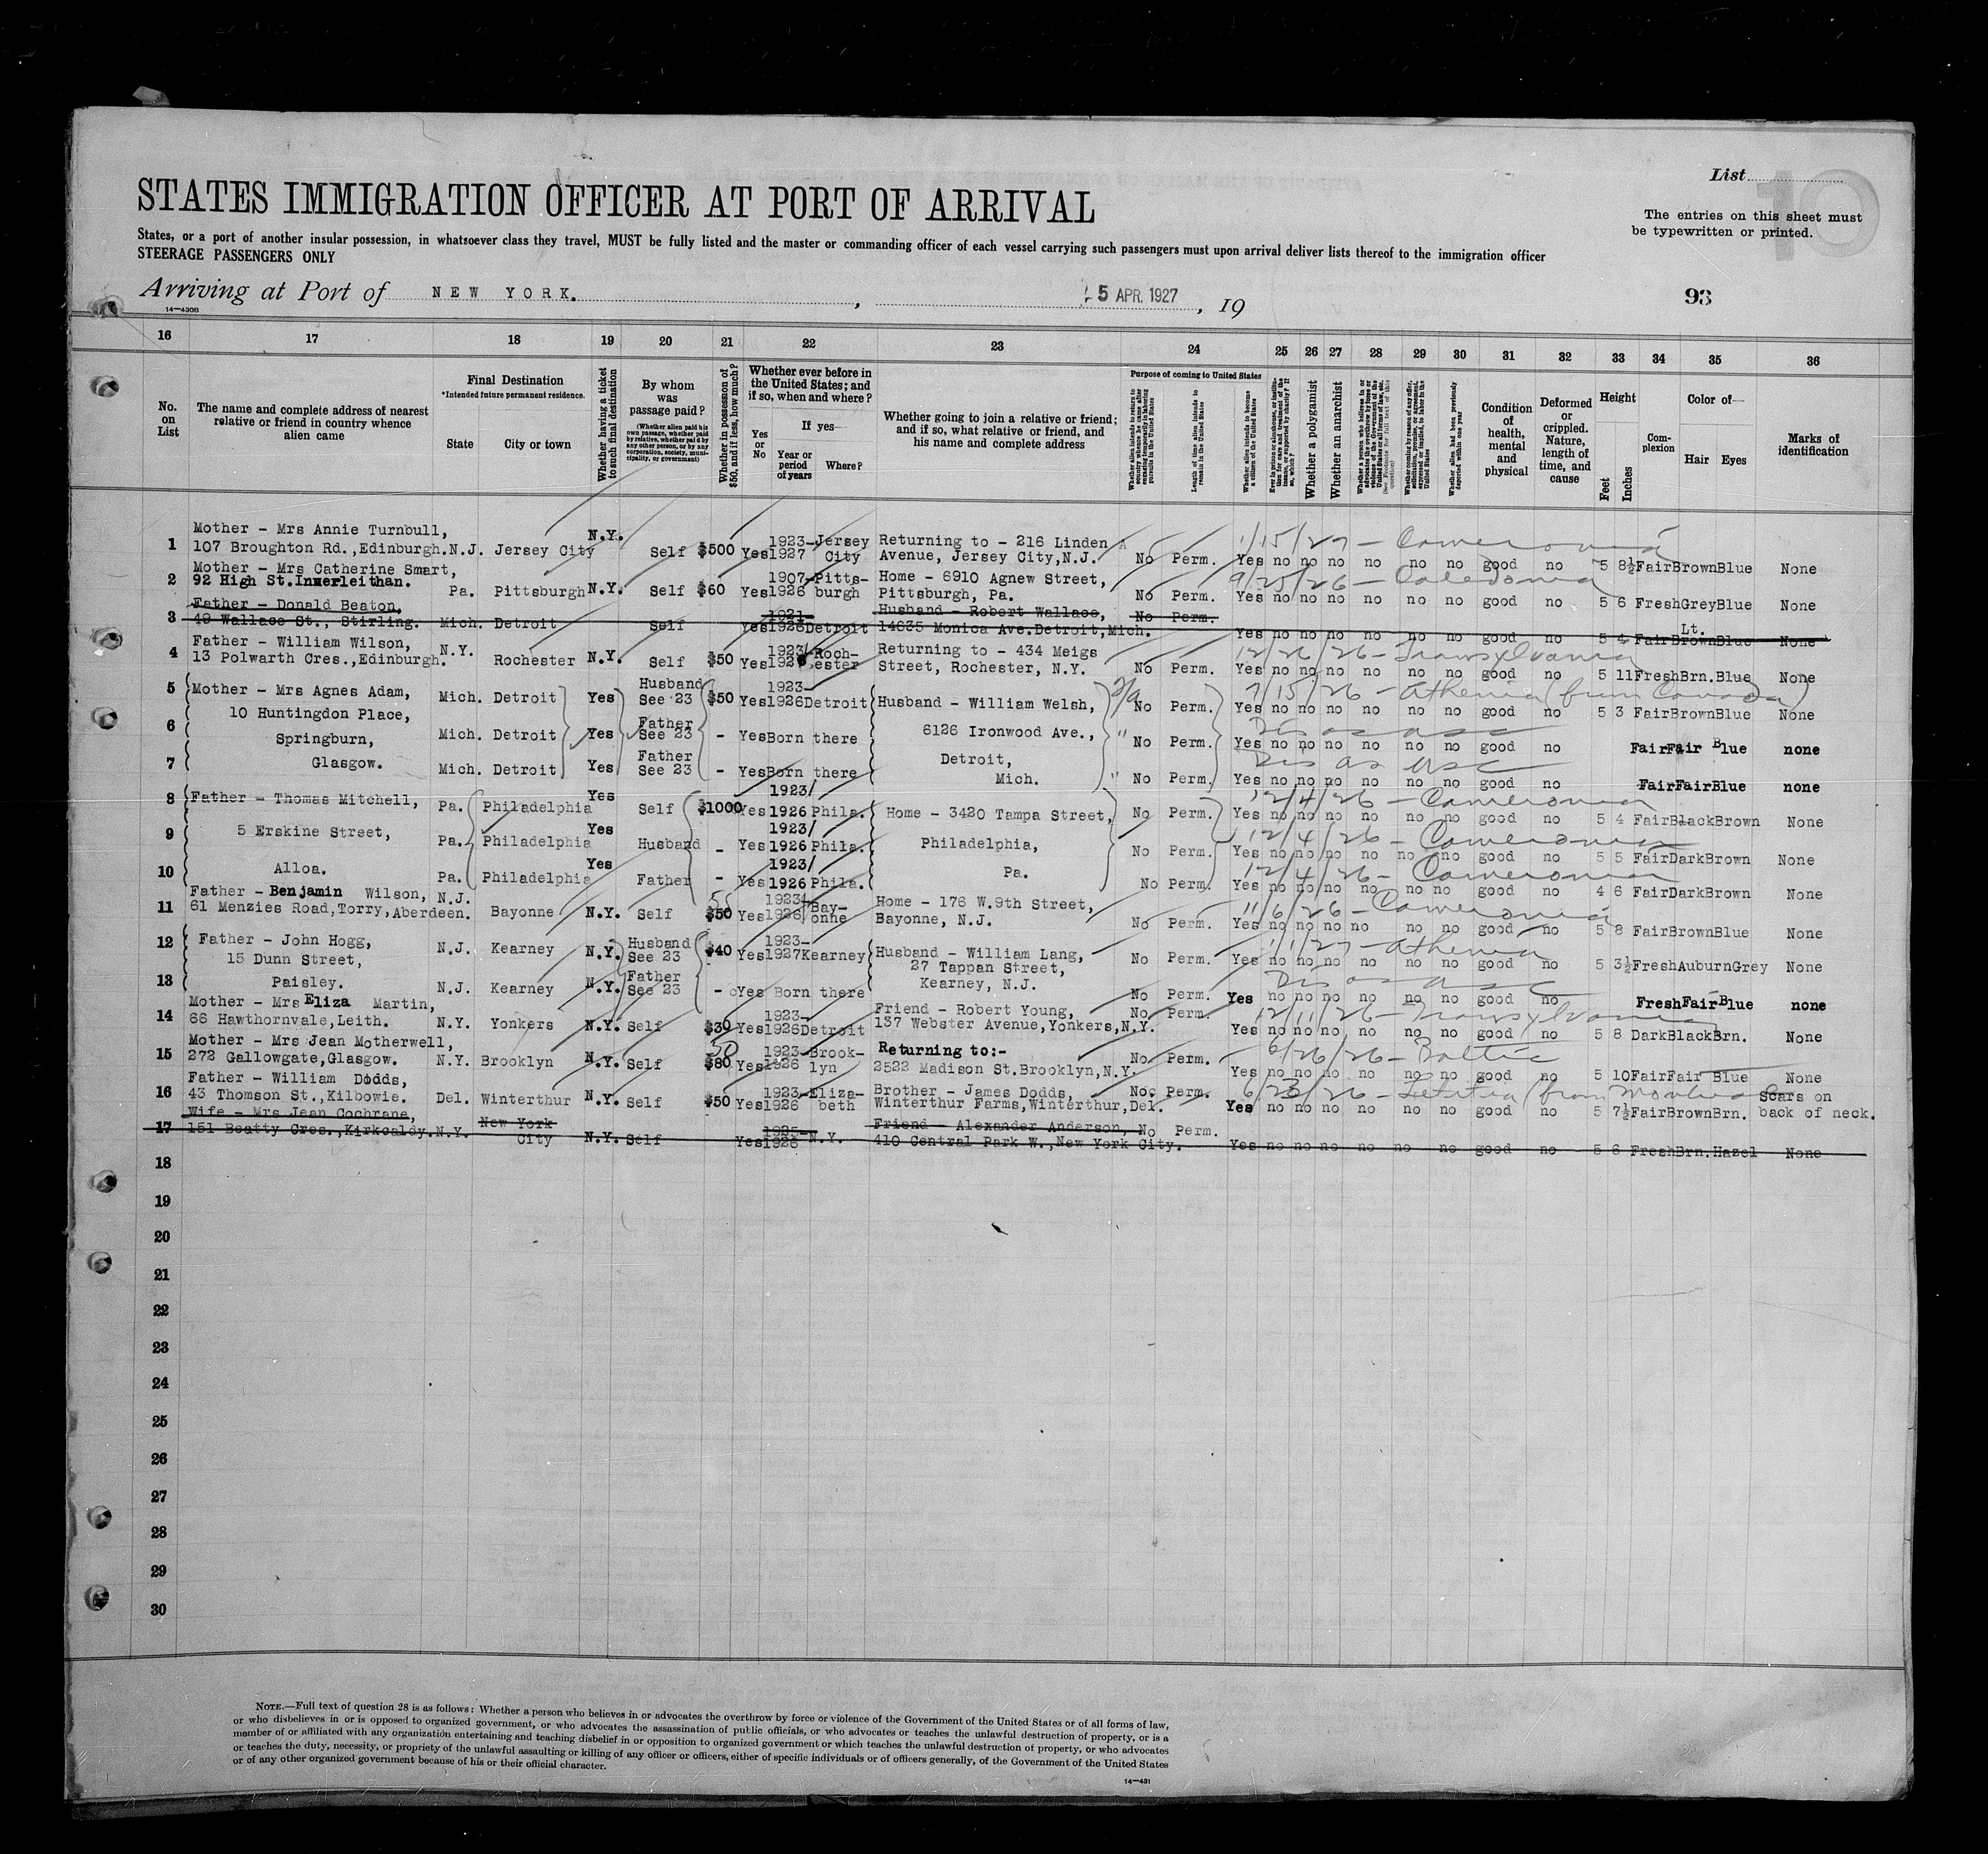 List
10
STATES IMMIGRATION OFFICER AT PORT OF ARRIVAL
The entries on this sheet must
be typewritten or printed.
States, or a port of another insular possession, in whatsoever class they travel, MUST be fully listed and the master or commanding officer of each vessel carrying such passengers must upon arrival deliver lists thereof to the immigration officer
STEERAGE PASSENGERS ONLY
Arriving at Port of NEW YORK. , 5 APR. 1927 , 19
93
14—4306
16 17 18 19 20 21 22 23 24 25 26 27 28 29 30 31 32 33 34 35 36
No. on List
The name and complete address of nearest relative or friend in country whence alien came
Final Destination
*Intended future permanent residence.
State
City or town
Whether having a ticket to such final destination
By whom was passage paid?
(Whether alien paid his own passage, whether paid by relative, whether paid by any other person, or by any corporation, society, municipality, or government)
Whether in possession of $50, and if less, how much?
Whether ever before in the United States; and if so, when and where?
Yes or No
If yes—
Year or period of years
Where?
Whether going to join a relative or friend; and if so, what relative or friend, and his name and complete address
Purpose of coming to United States
Whether alien intends to return to country whence he came after engaging temporarily in laboring pursuits in the United States
Length of time alien intends to remain in the United States
Whether alien intends to become a citizen of the United States
Ever in prison or almshouse, or institution for care and treatment of the insane, or supported by charity? If so, which?
Whether a polygamist
Whether an anarchist
Whether a person who believes in or advocates the overthrow by force or violence of the Government of the United States or all forms of law, etc. (See footnote for full text of this question)
Whether coming by reason of any offer, solicitation, promise, or agreement, expressed or implied, to labor in the United States
Whether alien had been previously deported within one year
Condition of health, mental and physical
Deformed or crippled. Nature, length of time, and cause
Height
Feet
Inches
Complexion
Color of—
Hair Eyes
Marks of identification
1 Mother - Mrs Annie Turnbull, 107 Broughton Rd.,Edinburgh. N.J. Jersey City N.Y. Self $500 Yes 1923-1927 Jersey City Returning to - 216 Linden Avenue, Jersey City,N.J. No Perm. Yes no no no no no no good no 5 8½ Fair Brown Blue None
1/15/27 - Cameronia
2 Mother - Mrs Catherine Smart, 92 High St.Innerleithan. Pa. Pittsburgh N.Y. Self $60 Yes 1907-1926 Pittsburgh Home - 6910 Agnew Street, Pittsburgh, Pa. No Perm. Yes no no no no no no good no 5 6 Fresh Grey Blue None
9/25/26 - Caledonia
3 Father - Donald Beaton, 49 Wallace St., Stirling. Mich. Detroit Self Yes 1921-1926 Detroit Husband - Robert Wallace, 14635 Monica Ave.Detroit,Mich. No Perm. Yes no no no no no no good no 5 4 Fair Lt. Brown Blue None
4 Father - William Wilson, 13 Polwarth Cres.,Edinburgh. N.Y. Rochester N.Y. Self $50 Yes 1923/192 Rochester Returning to - 434 Meigs Street, Rochester, N.Y. No Perm. Yes no no no no no no good no 5 11 Fresh Brn. Blue None
12/26/26 - Transylvania
5 Mother - Mrs Agnes Adam, Mich. Detroit Yes Husband See 23 $50 Yes 1923-1926 Detroit Husband - William Welsh, No Perm. Yes no no no no no no good no 5 3 Fair Brown Blue None
7/15/26 - Athenia (from Canada)
6 10 Huntingdon Place, Springburn, Mich. Detroit Yes Father See 23 - Yes Born there 6126 Ironwood Ave., " No Perm. Yes no no no no no no good no Fair Fair Blue none
Dis as usc
7 Glasgow. Mich. Detroit Yes Father See 23 - Yes Born there Detroit, Mich. " No Perm. Yes no no no no no no good no Fair Fair Blue none
Dis as usc
8 Father - Thomas Mitchell, Pa. Philadelphia Yes Self $1000 Yes 1923/1926 Phila. Home - 3420 Tampa Street, No Perm. Yes no no no no no no good no 5 4 Fair Black Brown None
12/4/26 - Cameronia
9 5 Erskine Street, Pa. Philadelphia Yes Husband - Yes 1923/1926 Phila. Philadelphia, No Perm. Yes no no no no no no good no 5 5 Fair Dark Brown None
12/4/26 - Cameronia
10 Alloa. Pa. Philadelphia Yes Father - Yes 1923/1926 Phila. Pa. No Perm. Yes no no no no no no good no 4 6 Fair Dark Brown None
12/4/26 - Cameronia
11 Father - Benjamin Wilson, 61 Menzies Road,Torry,Aberdeen. N.J. Bayonne N.Y. Self $50 Yes 1923/1926 Bayonne Home - 176 W.9th Street, Bayonne, N.J. No Perm. Yes no no no no no no good no 5 8 Fair Brown Blue None
11/6/26 - Cameronia
12 Father - John Hogg, 15 Dunn Street, N.J. Kearney N.Y. Husband See 23 $40 Yes 1923-1927 Kearney Husband - William Lang, 27 Tappan Street, No Perm. Yes no no no no no no good no 5 3½ Fresh Auburn Grey None
1/1/27 - Athenia
13 Paisley. N.J. Kearney N.Y. Father See 23 - Yes Born there Kearney, N.J. No Perm. Yes no no no no no no good no Fresh Fair Blue none
Dis as usc
14 Mother - Mrs Eliza Martin, 66 Hawthornvale,Leith. N.Y. Yonkers N.Y. Self $30 Yes 1923-1926 Detroit Friend - Robert Young, 137 Webster Avenue,Yonkers,N.Y. No Perm. Yes no no no no no no good no 5 8 Dark Black Brn. None
12/11/26 - Transylvania
15 Mother - Mrs Jean Motherwell, 272 Gallowgate,Glasgow. N.Y. Brooklyn N.Y. Self 50 $80 Yes 1923-1926 Brooklyn Returning to:- 2522 Madison St.Brooklyn,N.Y. No Perm. Yes no no no no no no good no 5 10 Fair Fair Blue None
6/26/26 - Baltic
16 Father - William Dodds, 43 Thomson St.,Kilbowie. Del. Winterthur N.Y. Self $50 Yes 1923-1926 Elizabeth Brother - James Dodds, Winterthur Farms,Winterthur,Del. No Perm. Yes no no no no no no good no 5 7½ Fair Brown Brn. Scars on back of neck.
6/23/26 - Letitia (from
17 Wife - Mrs Jean Cochrane, 151 Beatty Cres.,Kirkcaldy. N.Y. New York City N.Y. Self Yes 1925-1926 N.Y. Friend - Alexander Anderson, 410 Central Park W.,New York City. No Perm. Yes no no no no no no good no 5 6 Fresh Brn. Hazel None
18
19
20
21
22
23
24
25
26
27
28
29
30
NOTE.—Full text of question 28 is as follows: Whether a person who believes in or advocates the overthrow by force or violence of the Government of the United States or of all forms of law,
or who disbelieves in or is opposed to organized government, or who advocates the assassination of public officials, or who advocates or teaches the unlawful destruction of property, or is a
member of or affiliated with any organization entertaining and teaching disbelief in or opposition to organized government or which teaches the unlawful destruction of property, or who advocates
or teaches the duty, necessity, or propriety of the unlawful assaulting or killing of any officer or officers, either of specific individuals or of officers generally, of the Government of the United States
or of any other organized government because of his or their official character.
14—431